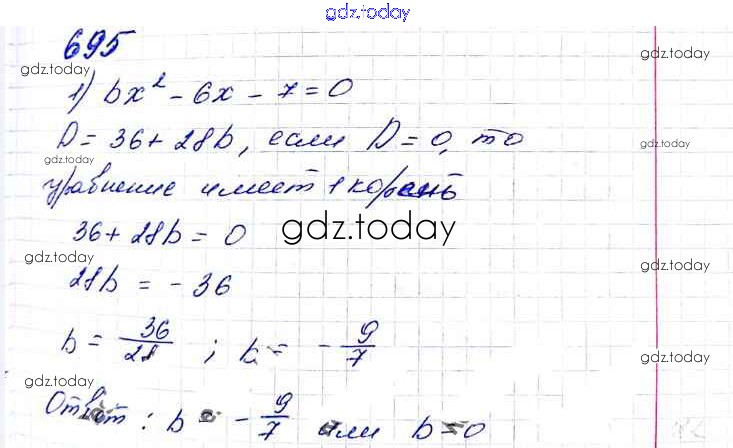 gdz.today
695
gdz.today
gdz.today
1) bx² - 6x - 7 = 0
D = 36 + 28b, если D = 0, то
gdz.today
gdz.today
уравнение имеет 1 корень
36 + 28b = 0
gdz.today
gdz.today
gdz.today
28b = - 36
b = - 36/28 ; b = - 9/7
gdz.today
gdz.today
Ответ: b = - 9/7 или b = 0